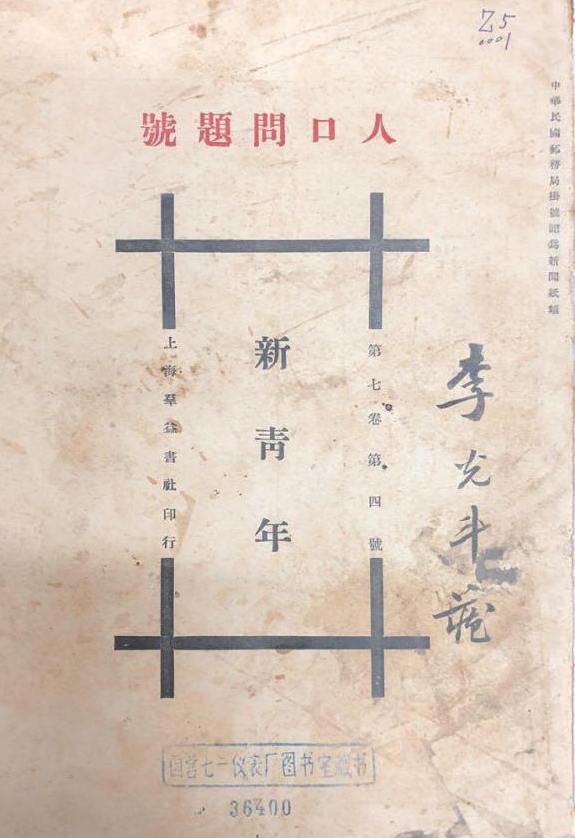 Z5
0001
中華民國郵務局掛號認爲新聞紙類
人口問題號
第七卷第四號
新青年
上海羣益書社印行
李光斗藏
国营七一仪表厂图书室藏书
36400